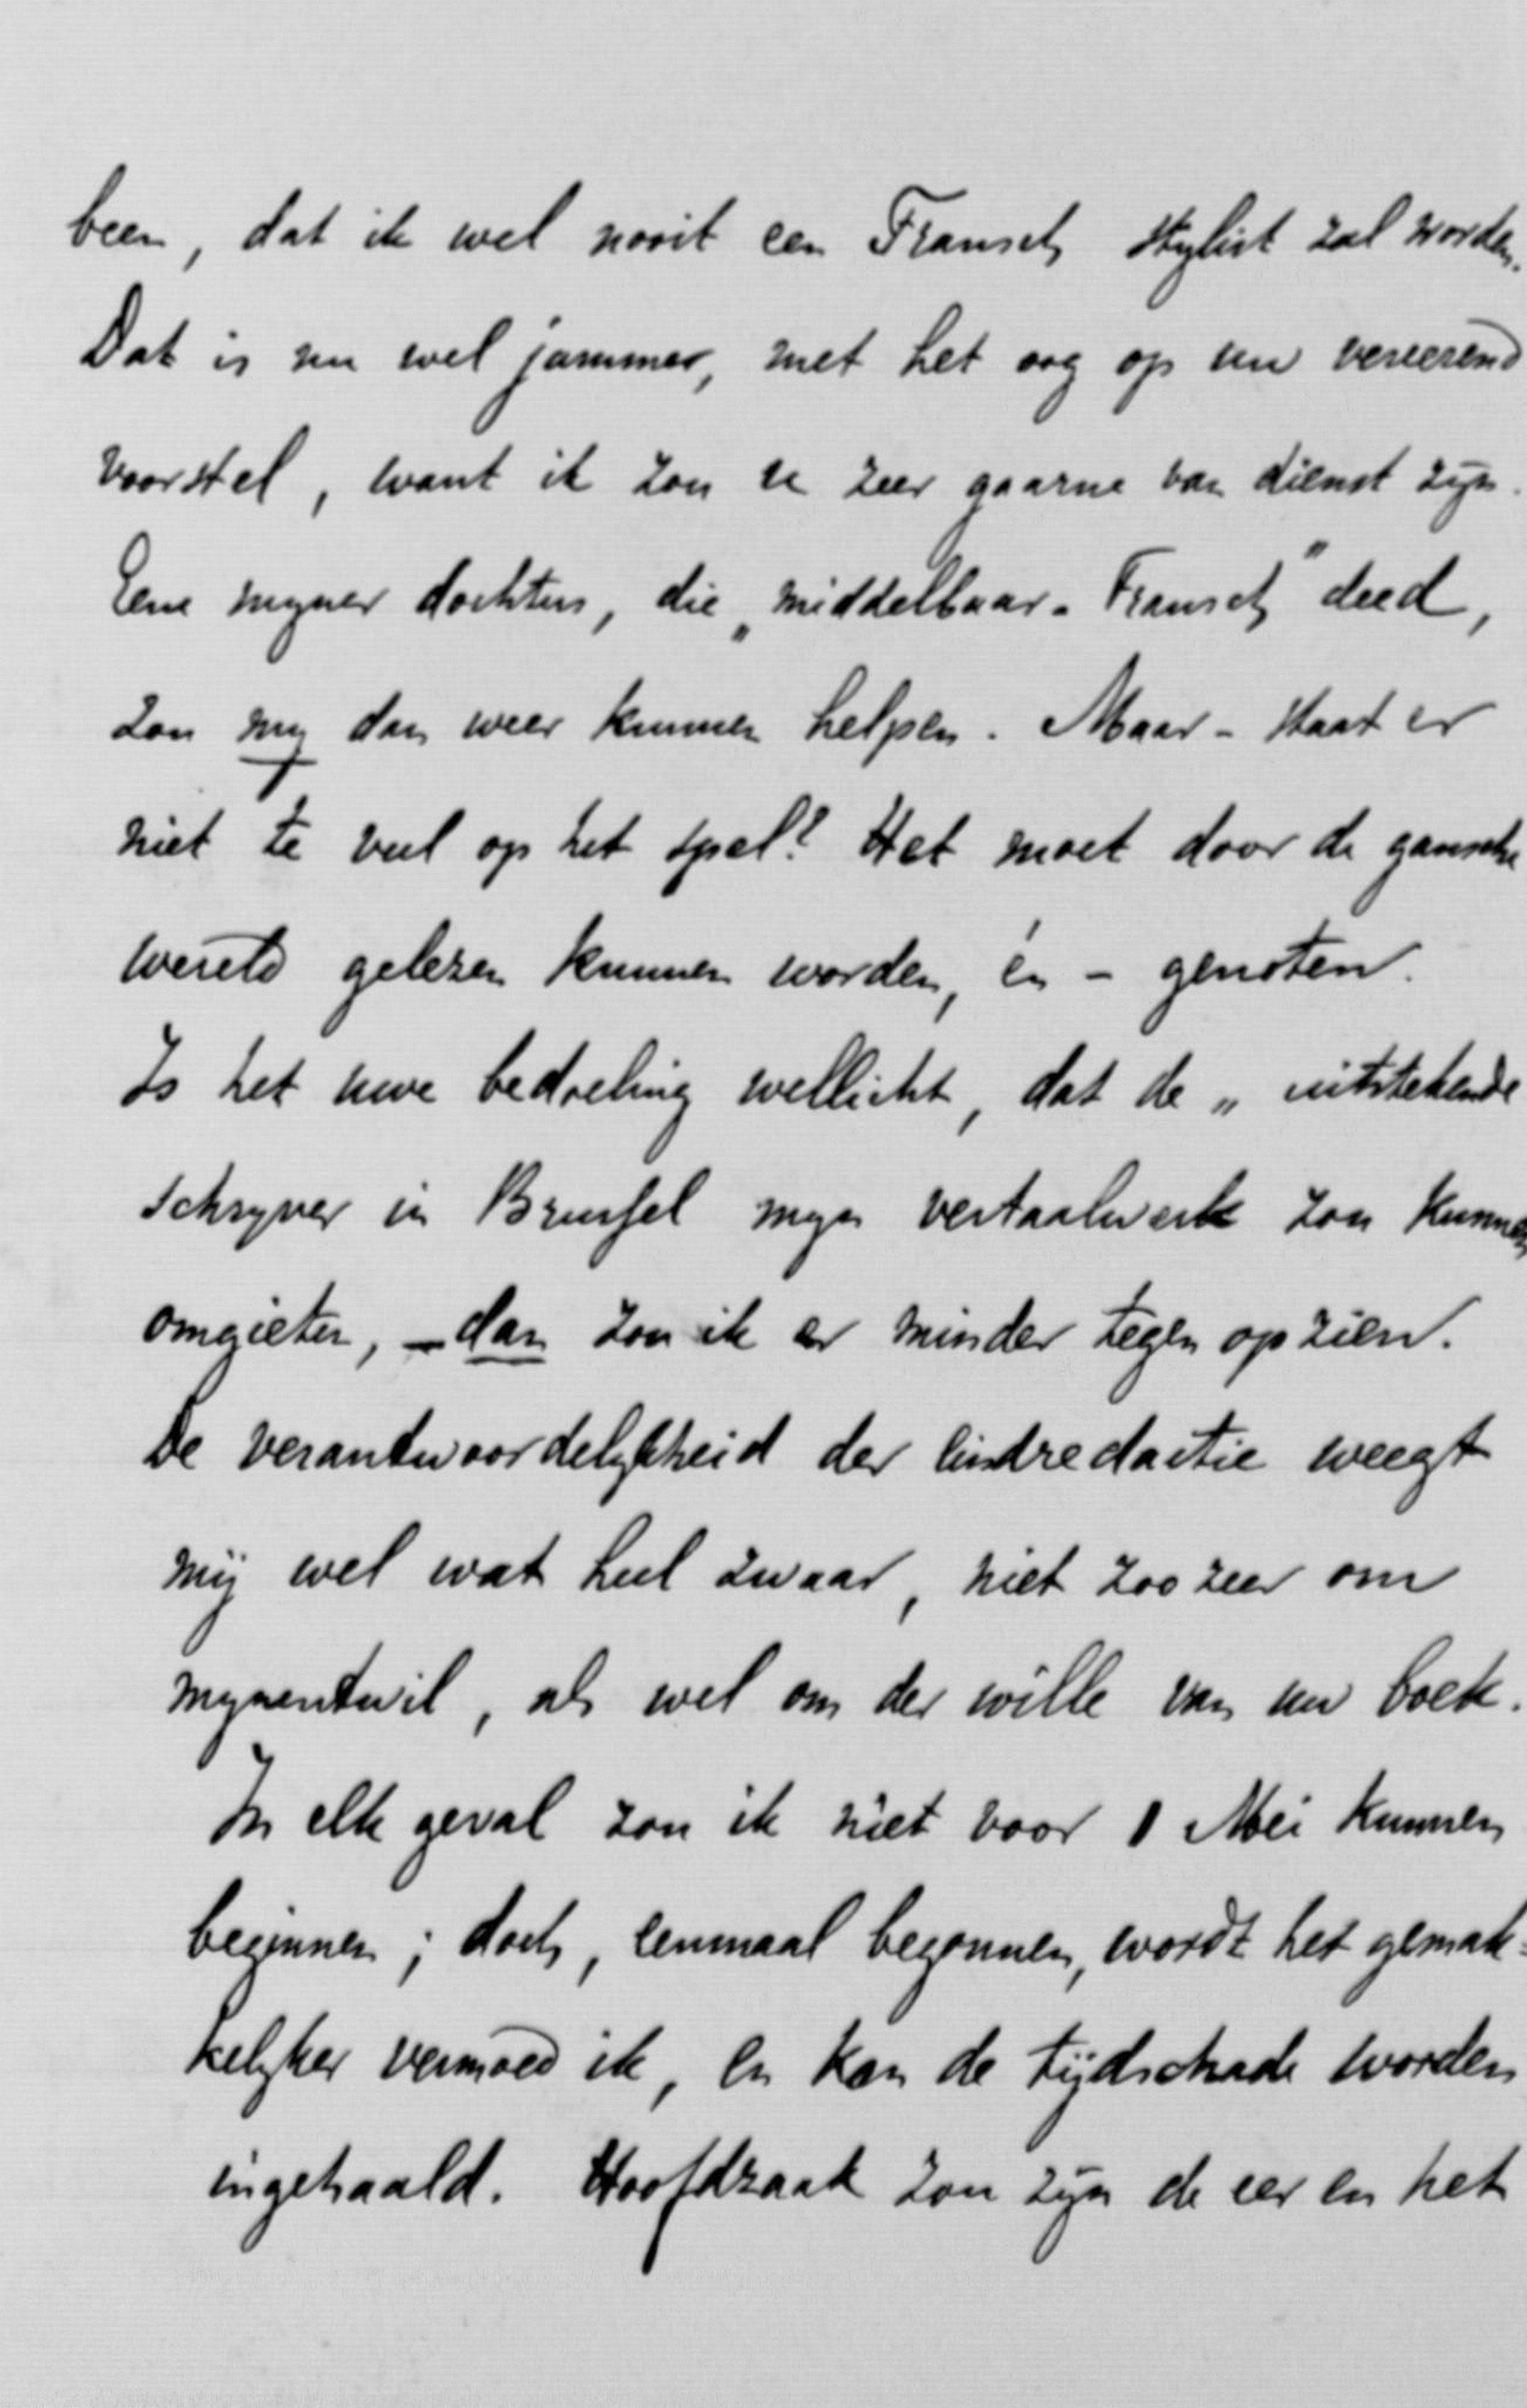 been, dat ik wel nooit een Fransch stylist zal worden.
Dat is nu wel jammer, met het oog op uw vereerend
voorstel, want ik zou u zeer gaarne van dienst zyn.
Eene myner dochters, die „middelbaar-Fransch" deed,
zou my dan weer kunnen helpen. Maar - staat er
niet te veel op het spel? Het moet door de gansche
wereld gelezen kunnen worden, én - genoten.
Is het uwe bedoeling wellicht, dat de „uitstekende
schryver in Brussel myn vertaalwerk zou kunnen
omgieten, - dan zou ik er minder tegen opzien.
De verantwoordelykheid der eindredactie weegt
mij wel wat heel zwaar, niet zoozeer om
mynentwil, als wel om der wille van uw boek.
In elk geval zou ik niet voor 1 Mei kunnen
beginnen; doch, eenmaal begonnen, wordt het gemak=
kelyker vermoed ik, en kan de tijdschade worden
ingehaald. Hoofdzaak zou zyn de eer en het